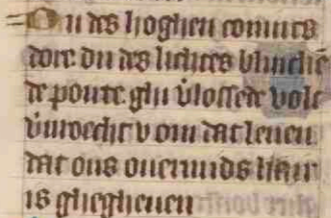 Du des hoghen conincs
dore du des lichtes blinckē
de porte. ghi v̓lossede volc
v̓uroecht v om dat leuen
dat ons ouermids haer
is ghegheuen